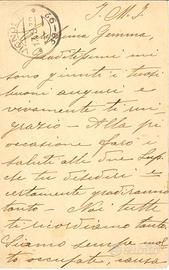 I. M. I
Gemma,
mi
sono giunti i tuoi
buoni auguri e
vivamente ti rin
grazio - Alla pri
occasione farò i
saluti alle due Sup.
che tu desideri e
certamente gradiranno
tanto - Noi tutte
ti ricordiamo tanto.
Siamo sempre mol
to occupate, causa